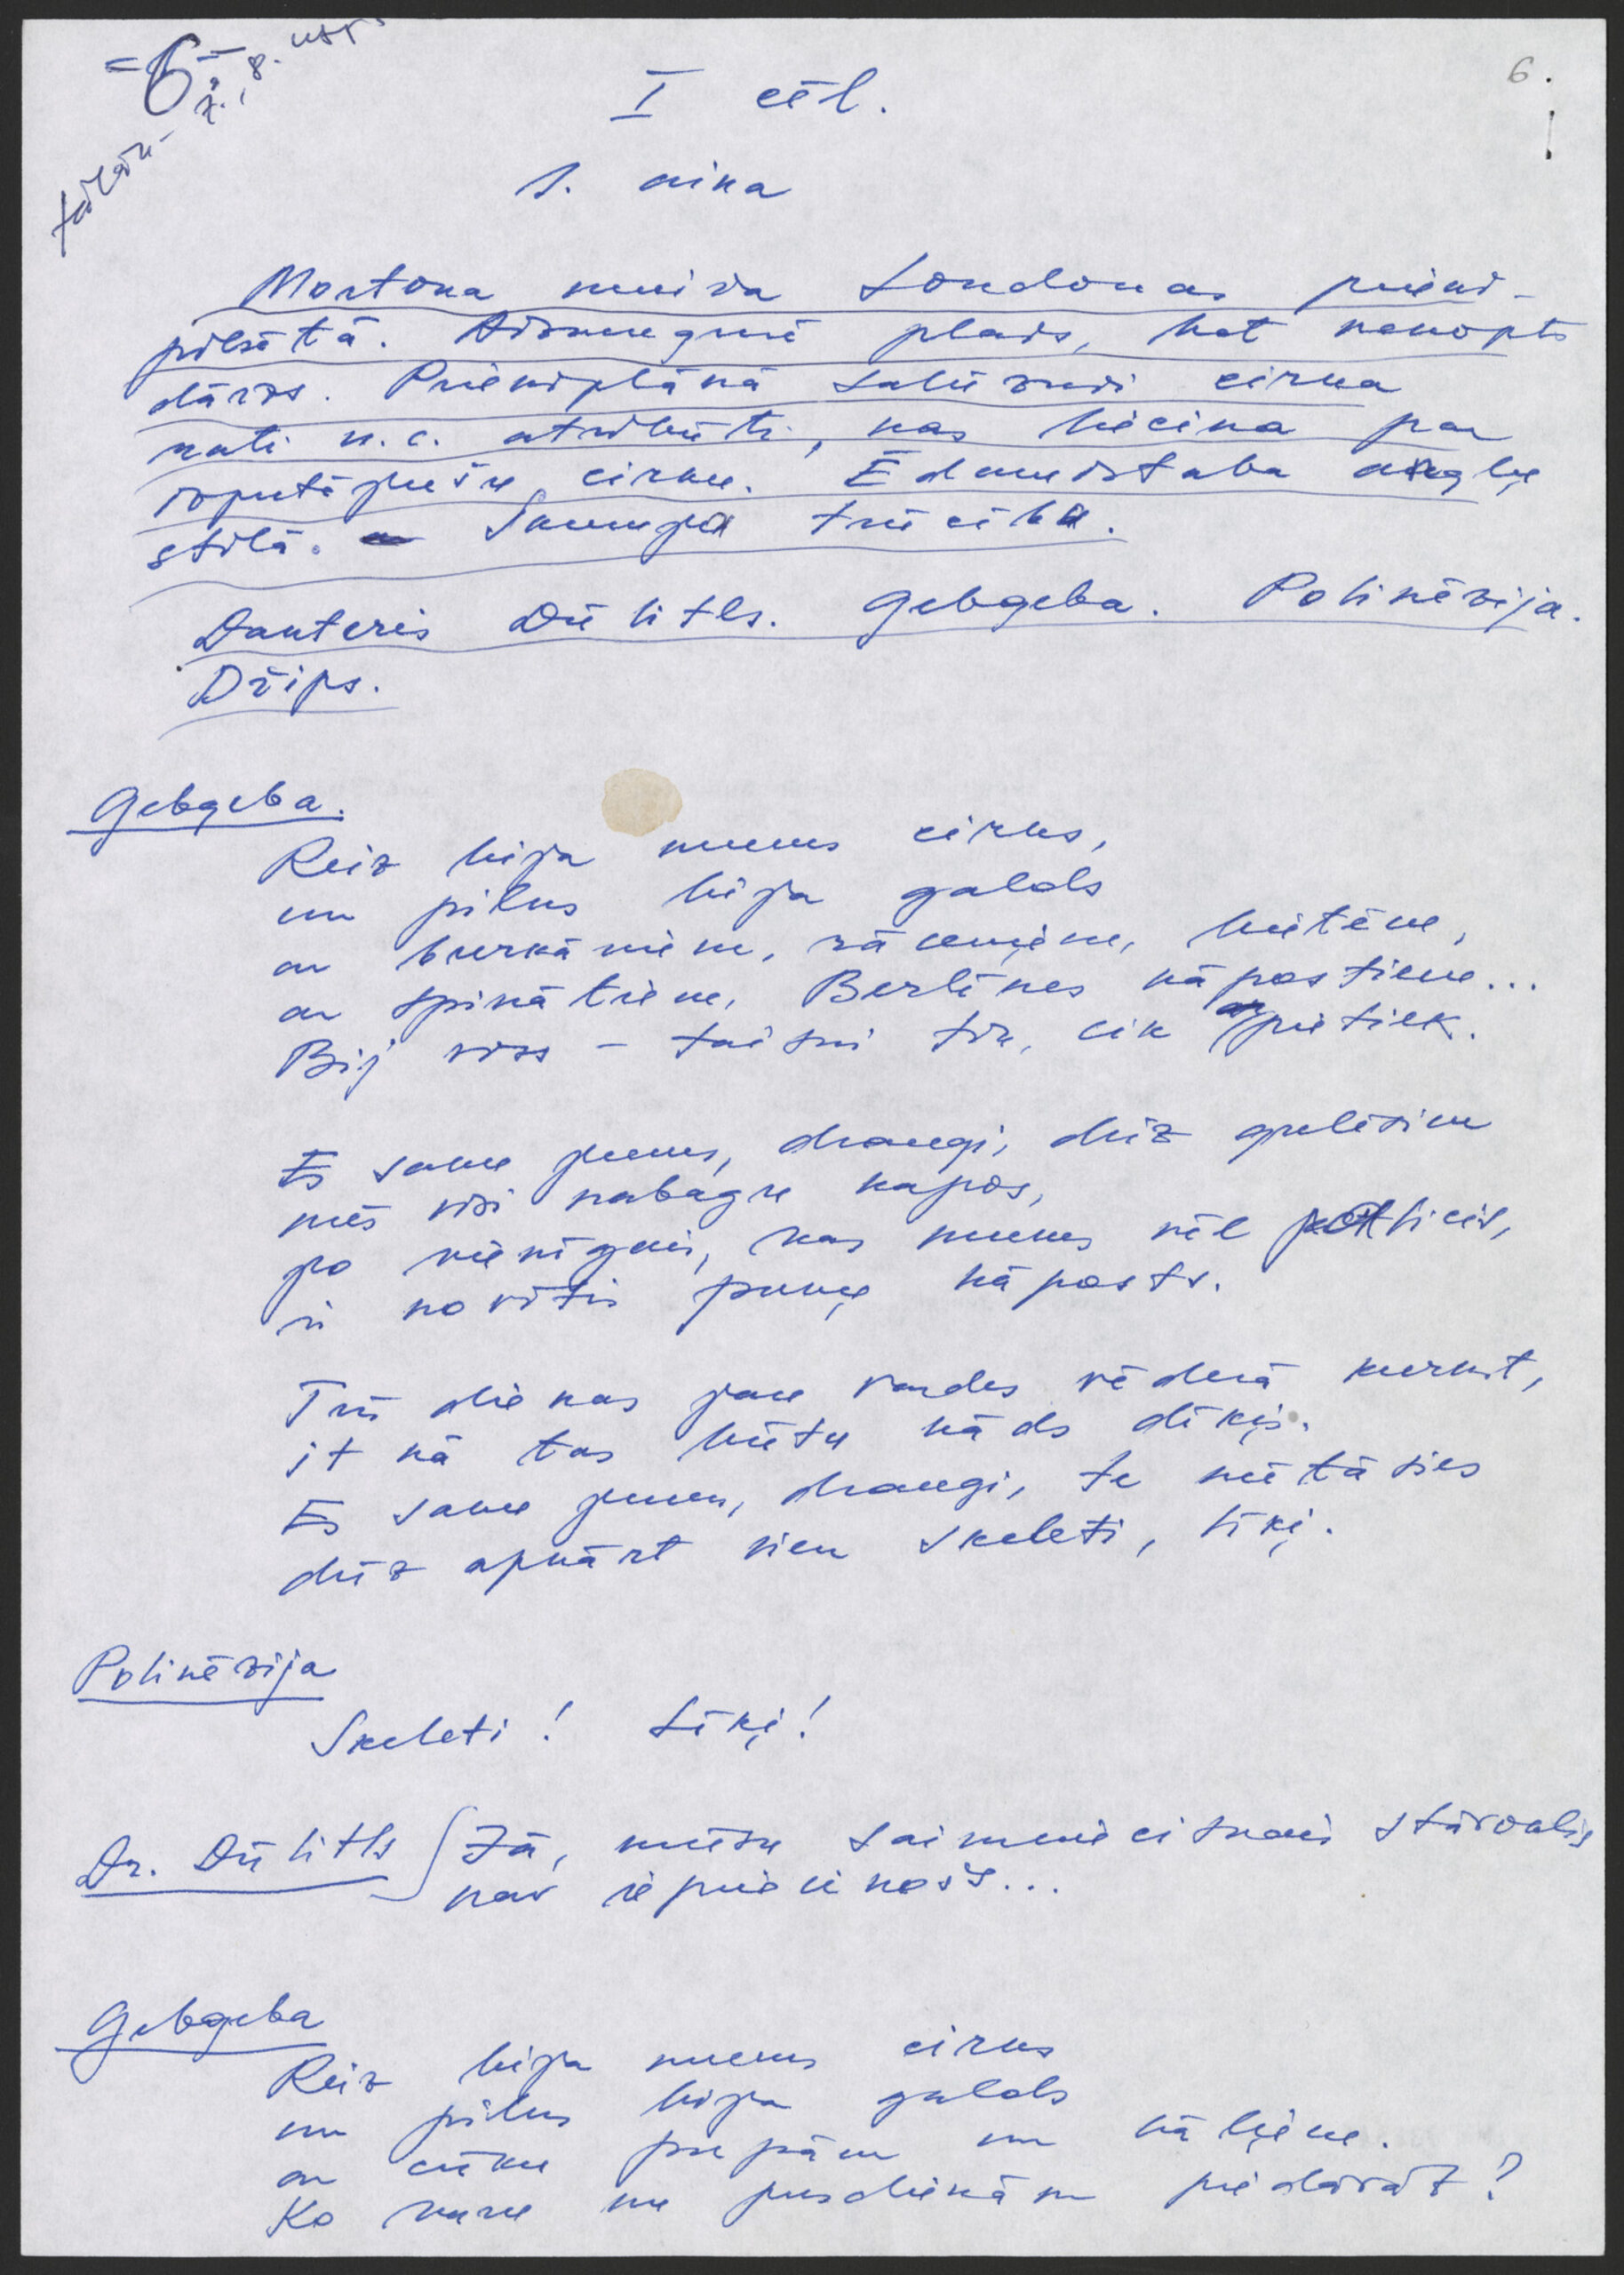 =6=
6.
I cēl.
1. aina
Mortona muiža Londonas priekš-
pilsētā. Aizmugurē plašs, bet nekopts
dārzs. Priekšplānā salūzuši cirka
rati u.c. atribūti, kas liecina par
izputējušu cirku. Ēdamistaba angļu
stilā. Skumja trūcība.
Dakteris Dūlitls. Gebgeba. Polinēzija.
Džips.
Gebgeba.
Reiz bija mums cirks,
un pilns bija galds
ar burkāniem, rāceņiem, bietēm,
ar spinātiem, Berlīnes kāpostiem...
Bij viss – taisni tik, cik pietiek.
Es saku jums, draugi, drīz gulēsim
mēs visi nabagu kapos,
jo vienīgais, kas mums vēl palicis,
ir novītis puņķ kāposts.
Trīs dienas jau vardes vēderā kurkst,
it kā tas būtu kāds dīķis.
Es saku jums, draugi, te mētāsies
drīz apkārt vien skeleti, līķi.
Polinēzija
Skeleti! Līķi!
Dr. Dūlitls Jā, mūsu saimnieciskais stāvoklis
nav iepriecinošs...
Gebgeba
Reiz bija mums cirks
un pilns bija galds
ar cūku pupām un kāļiem.
Ko varu nu pusdienām piedāvāt?